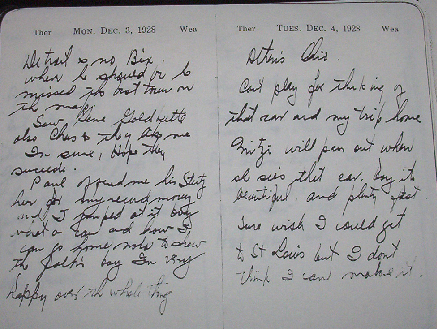 Ther Mon. Dec. 3, 1928 Wea
Detroit & no Bix
when he should or he
missed the boat then on
the map.
Saw Gene Goldkette
also Chas & they like me
Im sure, hope they
succeed.
Paul offered me his Stutz
for my record money
and I jumped at it boy
what a car and how I
can go home, now to show
the folks boy Im very
happy over the whole thing
Ther Tues. Dec. 4, 1928 Wea
Ohio
Cant play for thinking of
that car and my trip home
Mitzi will pass out when
she sees that car. boy its
beautiful and plenty fast
Sure wish I could get
to St Louis but I dont
think I can make it.